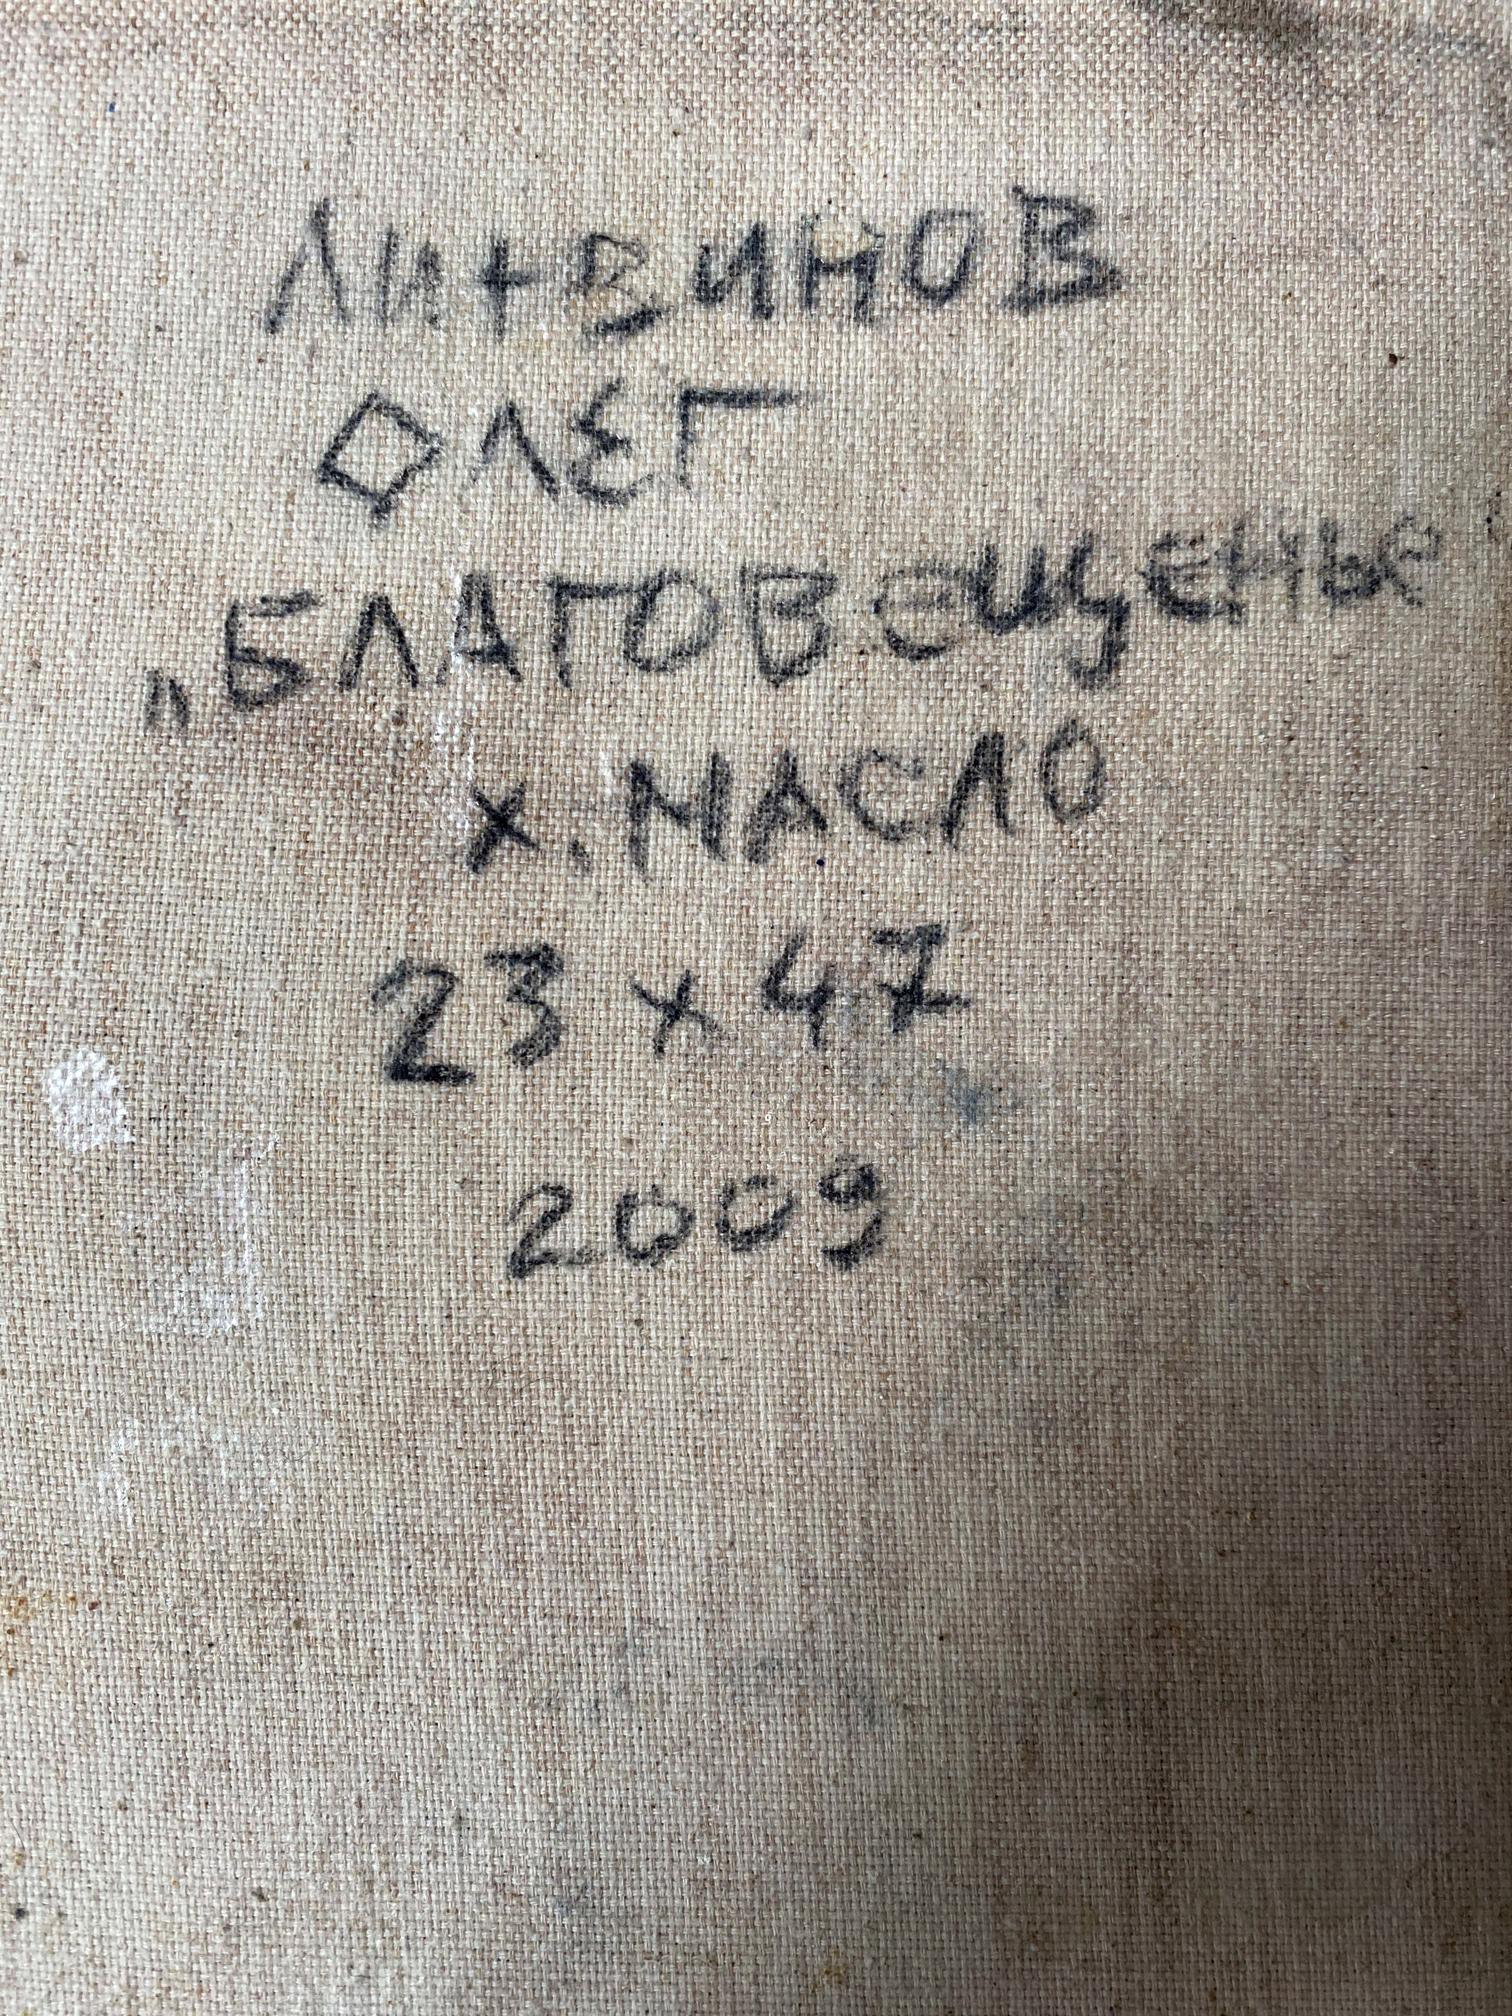 ЛИТВИНОВ
ОЛЕГ
„БЛАГОВЕЩЕНЬЕ“
х. МАСЛО
23 x 47
2009